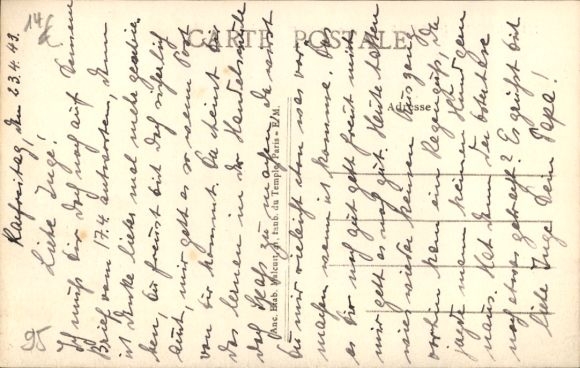 CARTE POSTALE
Adresse
Anc. Etab. Malcuit, faub. du Temple, Paris - E/M.
14
95
Karfreitag, den 23.4.43.
Liebe Inge!
Ich muß Dir doch noch auf Deinen
Brief vom 17.4 antworten, denn
ist Danke lieber mal mehr geschrie-
ben, Du freust Dich doch sicherlich
auch, mir geht es so wenn Post
von Dir kommt. Du scheint Dir
das lernen in der Handelsschule
doch Spaß zu machen, da wirst
Du mir vieleicht schon was vor
machen wenn ich komme. Das
es Dir noch gut geht freut mich
mir geht es noch gut. Heute hatten
wir wieder keinen Ausgang,
vorhin kam ein Regenguß, da
jagte man keinen Hund gern
naus. Hat denn der Osterhase
noch etwas gebracht? Es grüßt Dich
liebe Inge Dein Papa!